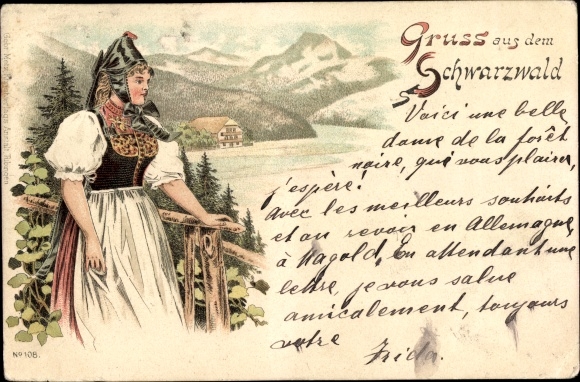 Gruss aus dem
Schwarzwald
Voici une belle
dame de la forêt
noire, qui vous plaira,
j'espère!
Avec les meilleurs souhaits
et au revoir en Allemagne,
à Nagold. En attendant une
lettre, je vous salue
amicalement, toujours
votre
Frida.
No 108.